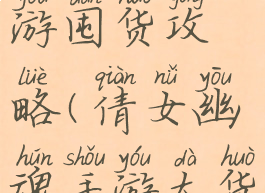 yóu dùn huò gōng
游囤货攻
lüè qiàn nǚ yōu
略(倩女幽
hún shǒu yóu dà huò
魂手游大货